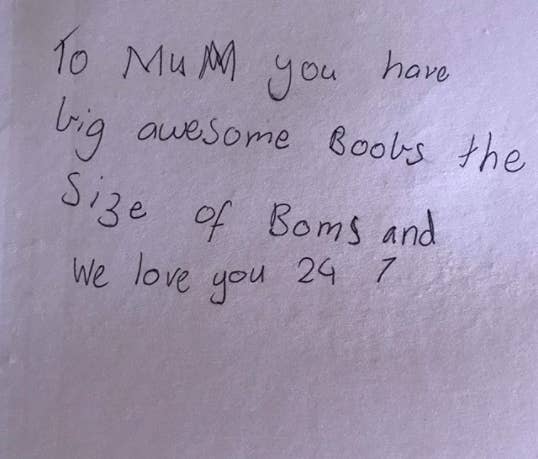 To MuM you have
big awesome Boobs the
Size of Boms and
We love you 24 7